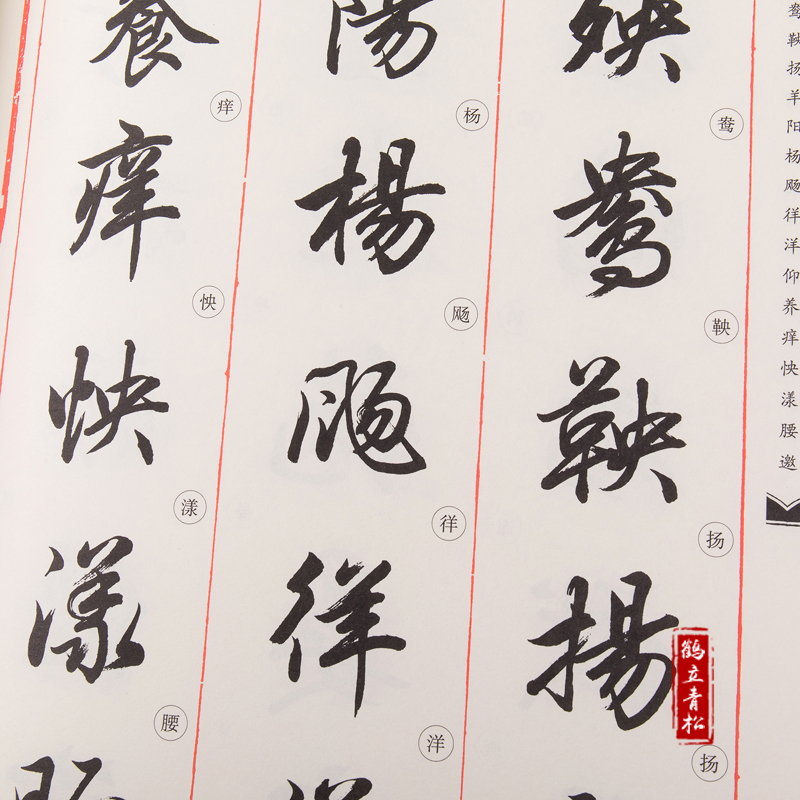 鸯鞅扬羊阳杨飏徉洋仰养痒怏漾腰邀
殃
鸯
鴦
鞅
鞅
扬
揚
扬
陽
杨
楊
飏
颺
徉
徉
洋
養
痒
痒
怏
怏
漾
漾
腰
鹤立青松